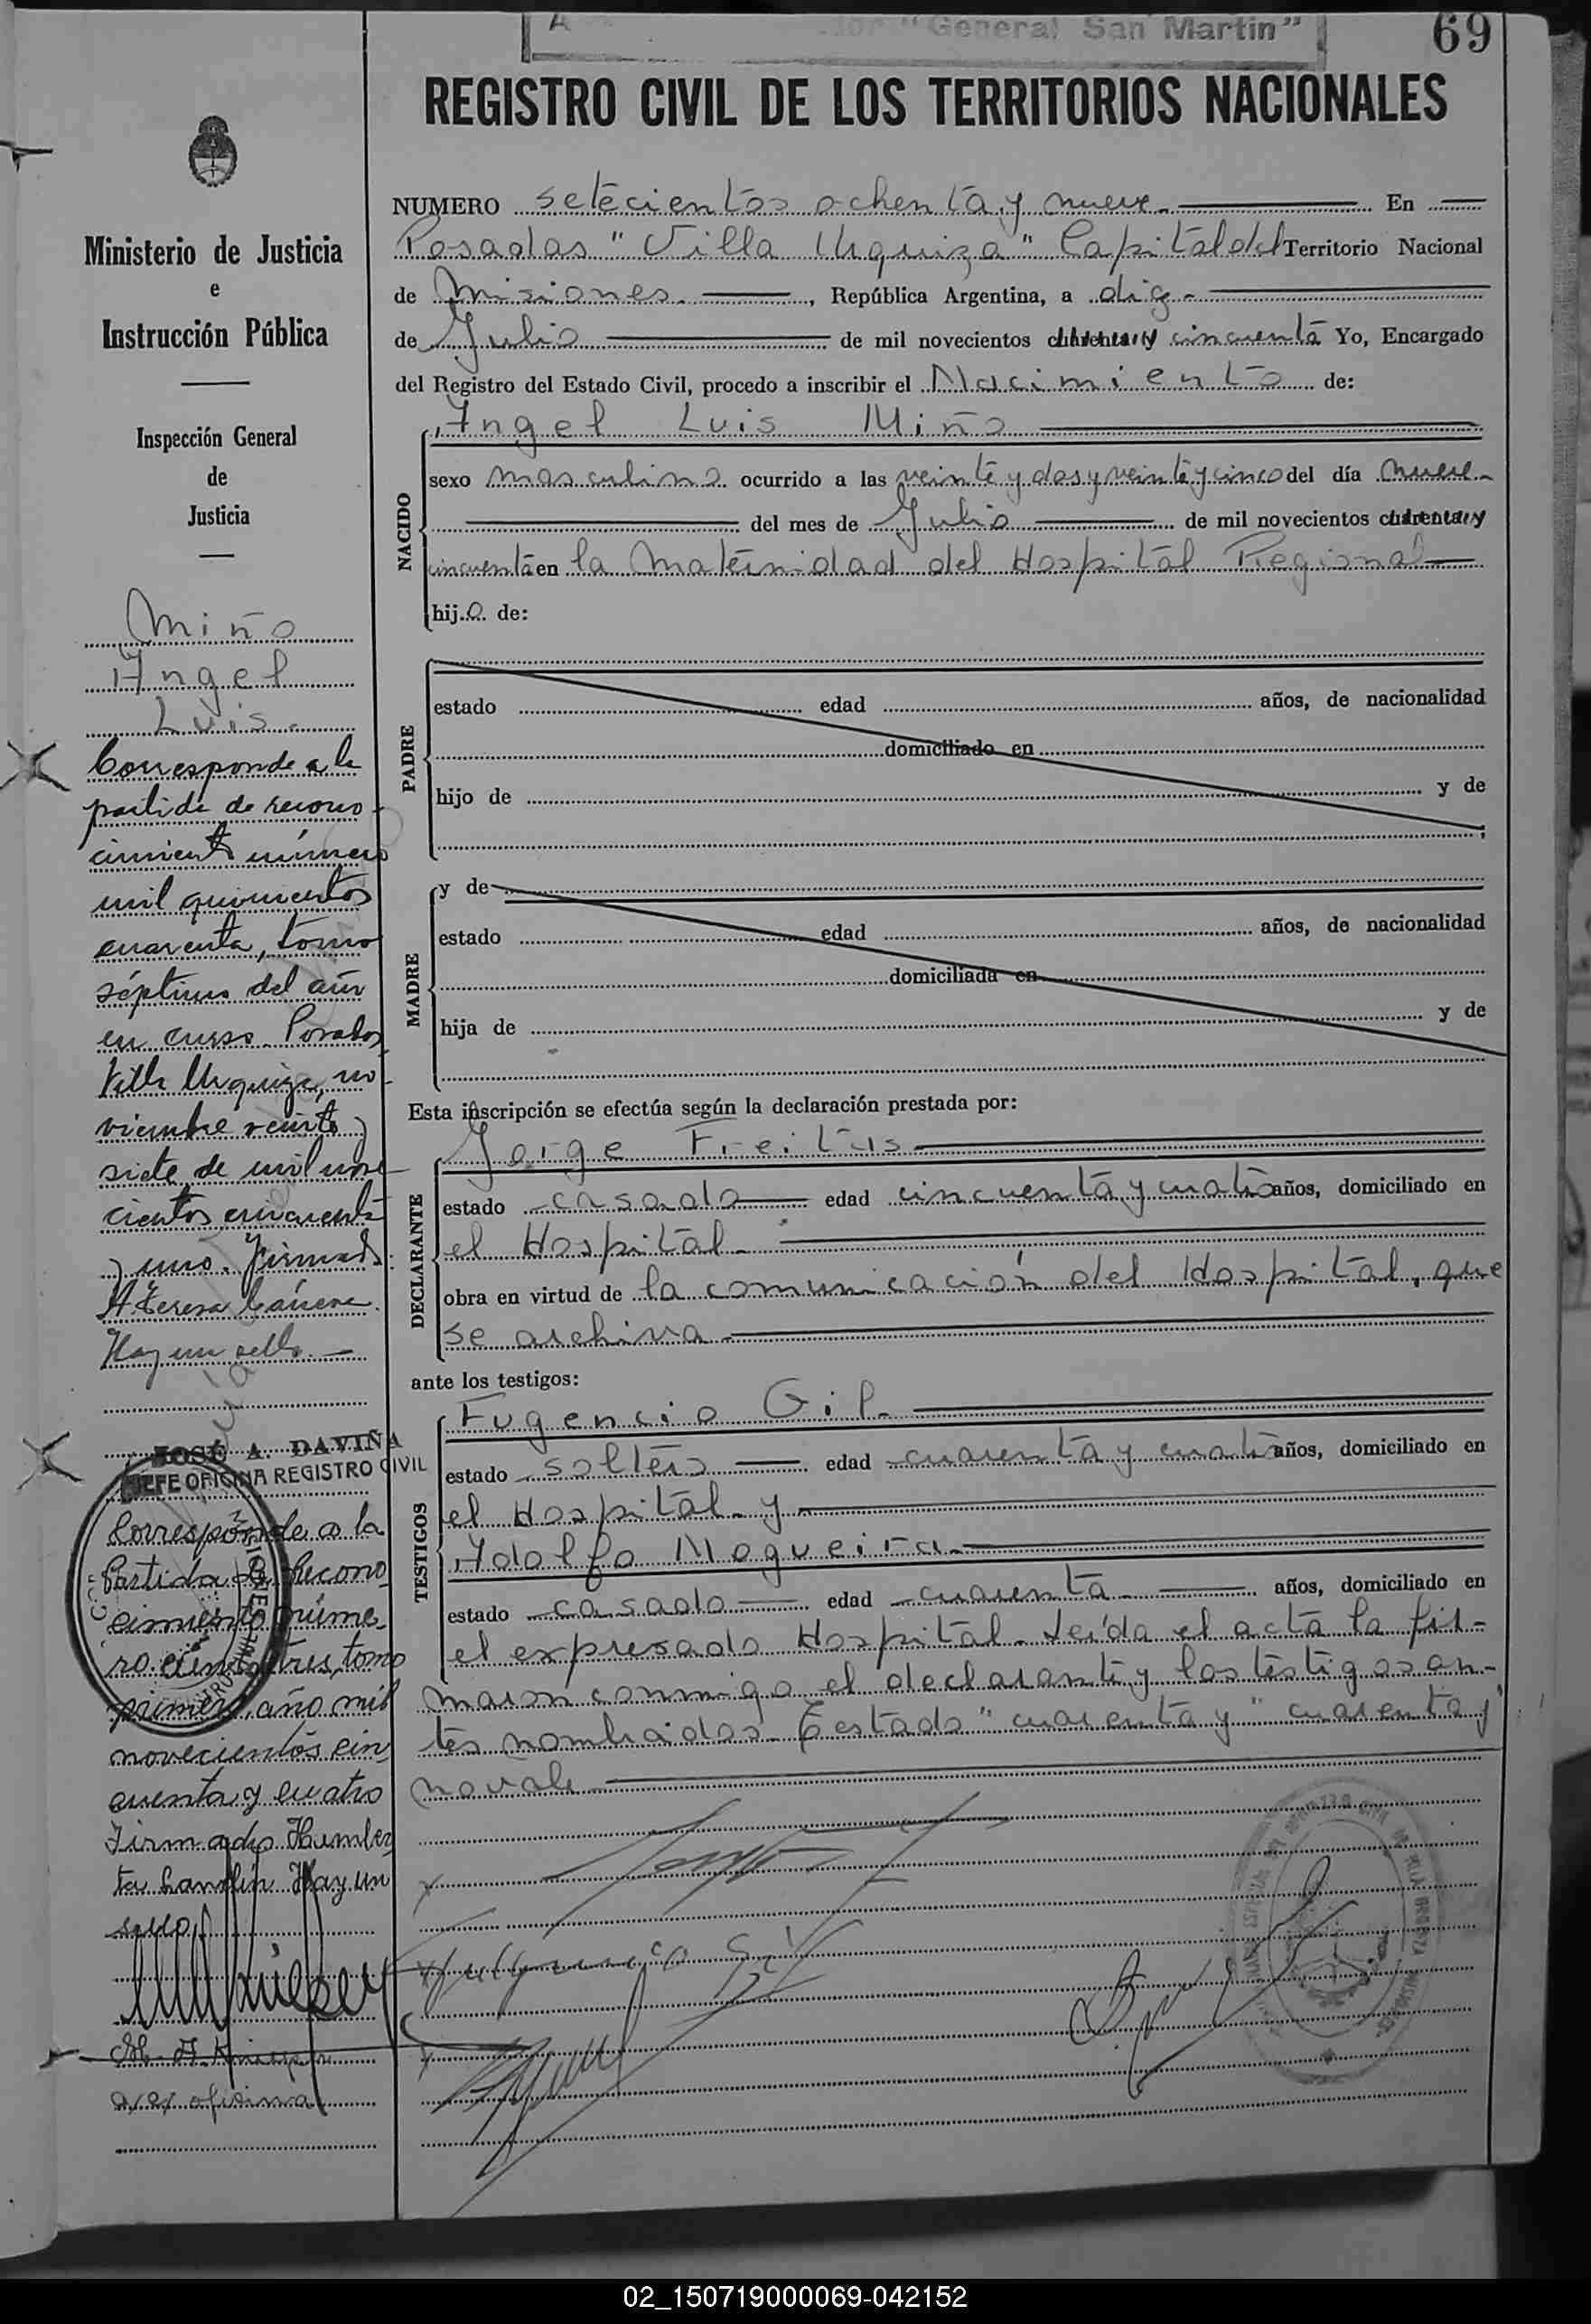 "General San Martin"
69
REGISTRO CIVIL DE LOS TERRITORIOS NACIONALES
Ministerio de Justicia
e
Instrucción Pública
Inspección General
de
Justicia
Miño
Angel
Luis
Corresponde a la
partida de recono-
cimiento número
mil quinientos
cuarenta, tomo
séptimo del año
en curso. Posadas,
Villa Urquiza, no-
viembre veinte y
siete de mil nove
cientos cincuenta
y uno. Firmado:
A. Teresa
Hay un sello.
JOSÉ A. DAVIÑA
JEFE OFICINA REGISTRO CIVIL
Corresponde a la
Partida de Recono-
cimiento núme-
ro ciento tres, tomo
primero, año mil
novecientos cin
cuenta y cuatro
Firmado Humber
to Hay un
sello
oficina
NUMERO setecientos ochenta y nueve. En
Posadas "Villa Urquiza" Capital del Territorio Nacional
de Misiones. , República Argentina, a diez
de Julio de mil novecientos cuarenta y cincuenta Yo, Encargado
del Registro del Estado Civil, procedo a inscribir el Nacimiento de:
NACIDO
Angel Luis Miño
sexo masculino ocurrido a las veinte y dos y veinte y cinco del día nueve-
del mes de Julio de mil novecientos cuarenta y
cincuenta en la Maternidad del Hospital Regional
hijo de:
PADRE
estado edad años, de nacionalidad
domiciliado en
hijo de y de
;
MADRE
y de
estado edad años, de nacionalidad
domiciliada en
hija de y de
Esta inscripción se efectúa según la declaración prestada por:
DECLARANTE
Jorge Freitas
estado casado edad cincuenta y cuatro años, domiciliado en
el Hospital.
obra en virtud de la comunicación del Hospital, que
se archiva
ante los testigos:
TESTIGOS
Fugencio Gil.
estado soltero edad cuarenta y cuatro años, domiciliado en
el Hospital y
Adolfo Nogueira.
estado casado edad cuarenta años, domiciliado en
el expresado Hospital. Leída el acta la fir-
maron conmigo el declarante y los testigos an-
tes nombrados. Testado "cuarenta y" "cuarenta y"
no vale
02_150719000069-042152